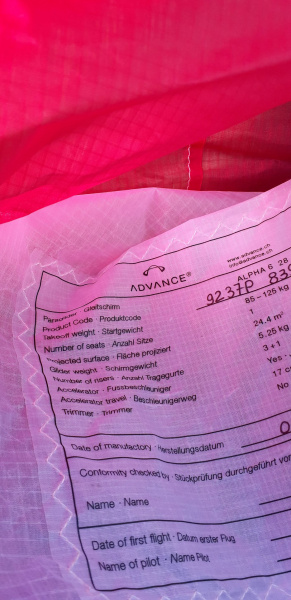 www.advance.ch
info@advance.ch
ADVANCE®
Gleitschirm ALPHA 6 28
Product Code · Produktcode 9237P
Takeoff weight · Startgewicht 85 – 125 kg
Number of seats · Anzahl Sitze 1
Projected surface · Fläche projiziert 24.4 m²
Glider weight · Schirmgewicht 5.25 kg
Number of risers · Anzahl Tragegurte 3 + 1
Accelerator · Fussbeschleuniger Yes ·
Accelerator travel · Beschleunigerweg 17 c
Trimmer · Trimmer No
Date of manufactory · Herstellungsdatum
Conformity checked by · Stückprüfung durchgeführt vo
Name · Name
Date of first flight · Datum erster Flug
Name of pilot · Name Pilot